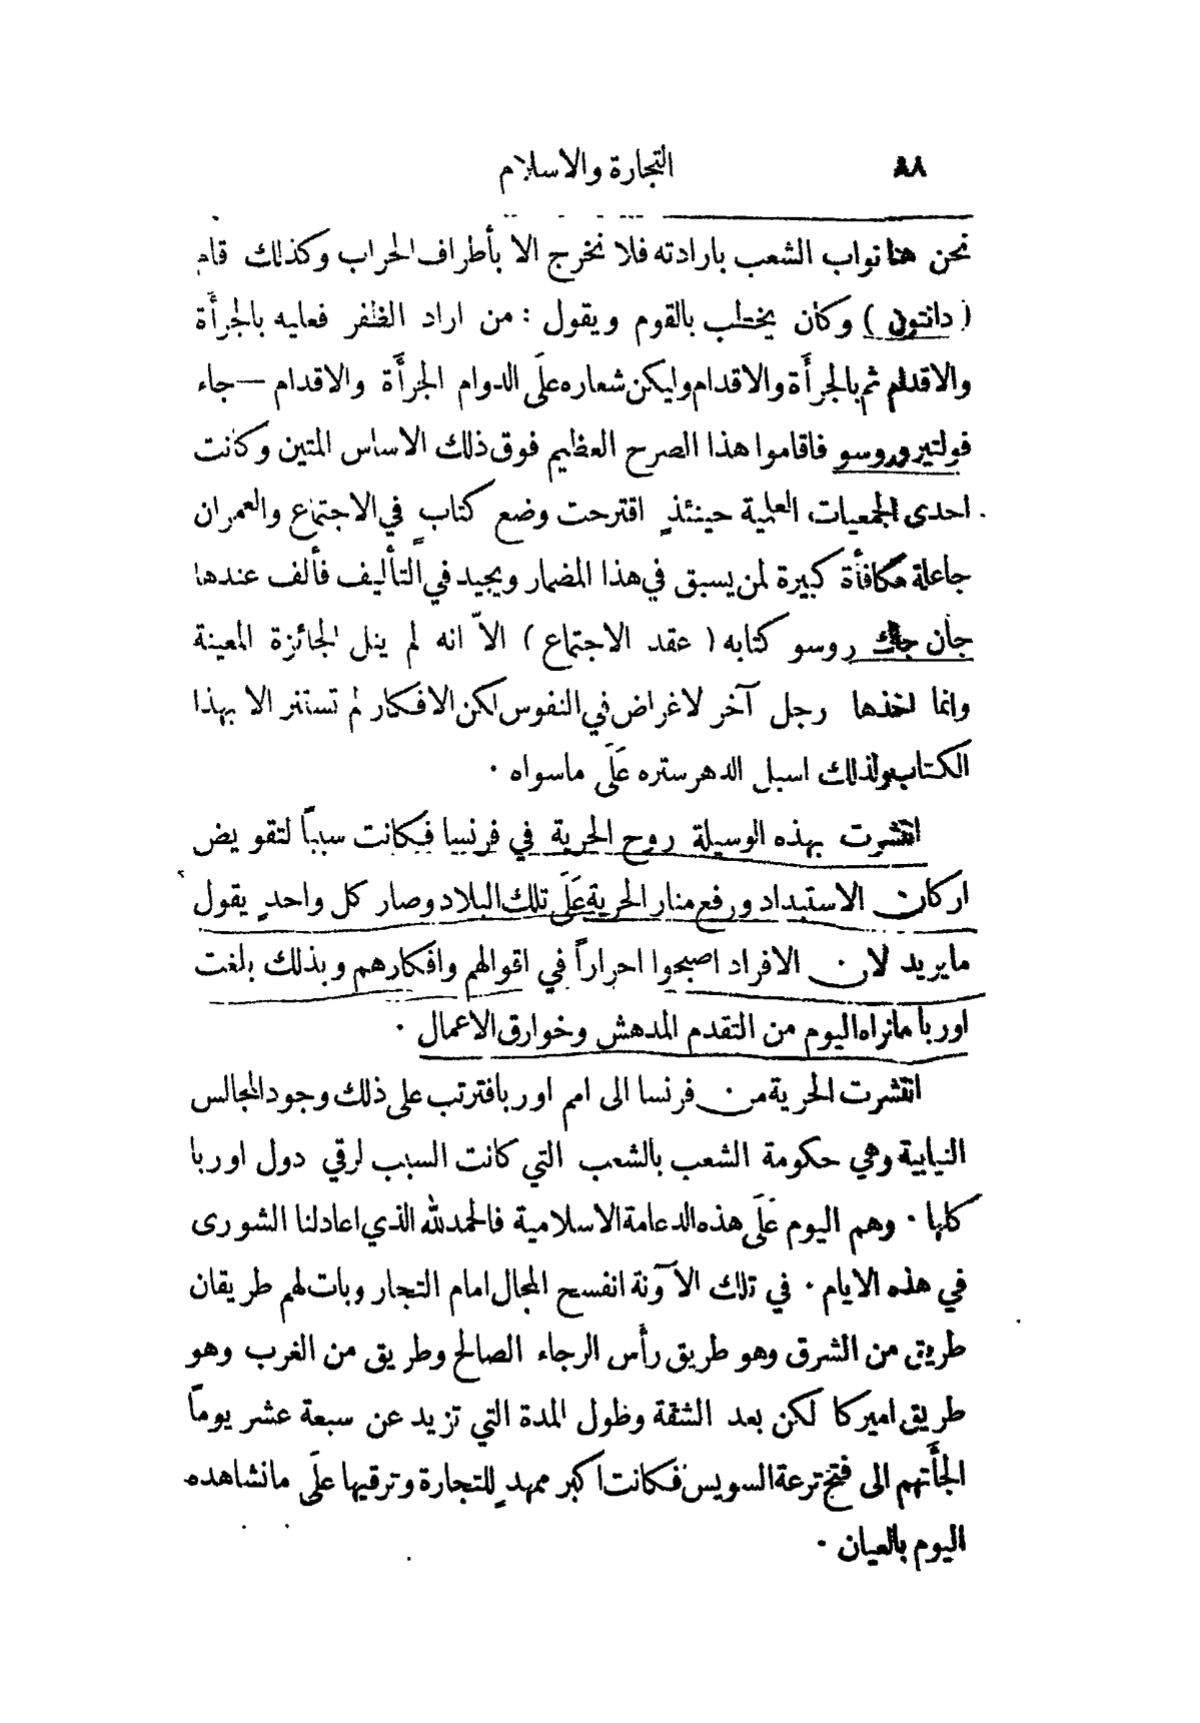 ٨٨ التجارة والاسلام
نحن هنا نواب الشعب بارادته فلا نخرج الا بأطراف الحراب وكذلك قام
( دانتون ) وكان يخطب بالقوم ويقول : من اراد الظفر فعليه بالجرأة
والاقدام ثم بالجرأة والاقدام وليكن شعاره علَى الدوام الجرأة والاقدام — جاء
فولتير وروسو فاقاموا هذا الصرح العظيم فوق ذلك الاساس المتين وكانت
احدى الجمعيات العلمية حينئذٍ اقترحت وضع كتابٍ في الاجتماع والعمران
جاعلة مكافأة كبيرة لمن يسبق في هذا المضمار ويجيد في التأليف فألف عندها
جان جاك روسو كتابه ( عقد الاجتماع ) الاّ انه لم ينل الجائزة المعينة
وانما اخذها رجل آخر لاغراض في النفوس لكن الافكار لم تستنر الا بهذا
الكتاب ولذلك اسبل الدهر ستره علَى ماسواه ٠
انتشرت بهذه الوسيلة روح الحرية في فرنسا فكانت سبباً لتقويض
اركان الاستبداد ورفع منار الحرية علَى تلك البلاد وصار كل واحدٍ يقول
مايريد لان الافراد اصبحوا احراراً في اقوالهم وافكارهم وبذلك بلغت
اوربا مانراه اليوم من التقدم المدهش وخوارق الاعمال ٠
انتشرت الحرية من فرنسا الى امم اوربا فترتب على ذلك وجود المجالس
النيابية وهي حكومة الشعب بالشعب التي كانت السبب لرقي دول اوربا
كلها ٠ وهم اليوم علَى هذه الدعامة الاسلامية فالحمدلله الذي اعادلنا الشورى
في هذه الايام ٠ في تلك الآونة انفسح المجال امام التجار وبات لهم طريقان
طريق من الشرق وهو طريق رأس الرجاء الصالح وطريق من الغرب وهو
طريق اميركا لكن بعد الشقة وطول المدة التي تزيد عن سبعة عشر يوماً
الجأتهم الى فتح ترعة السويس فكانت اكبر ممهدٍ للتجارة وترقيها علَى مانشاهده
اليوم بالعيان ٠